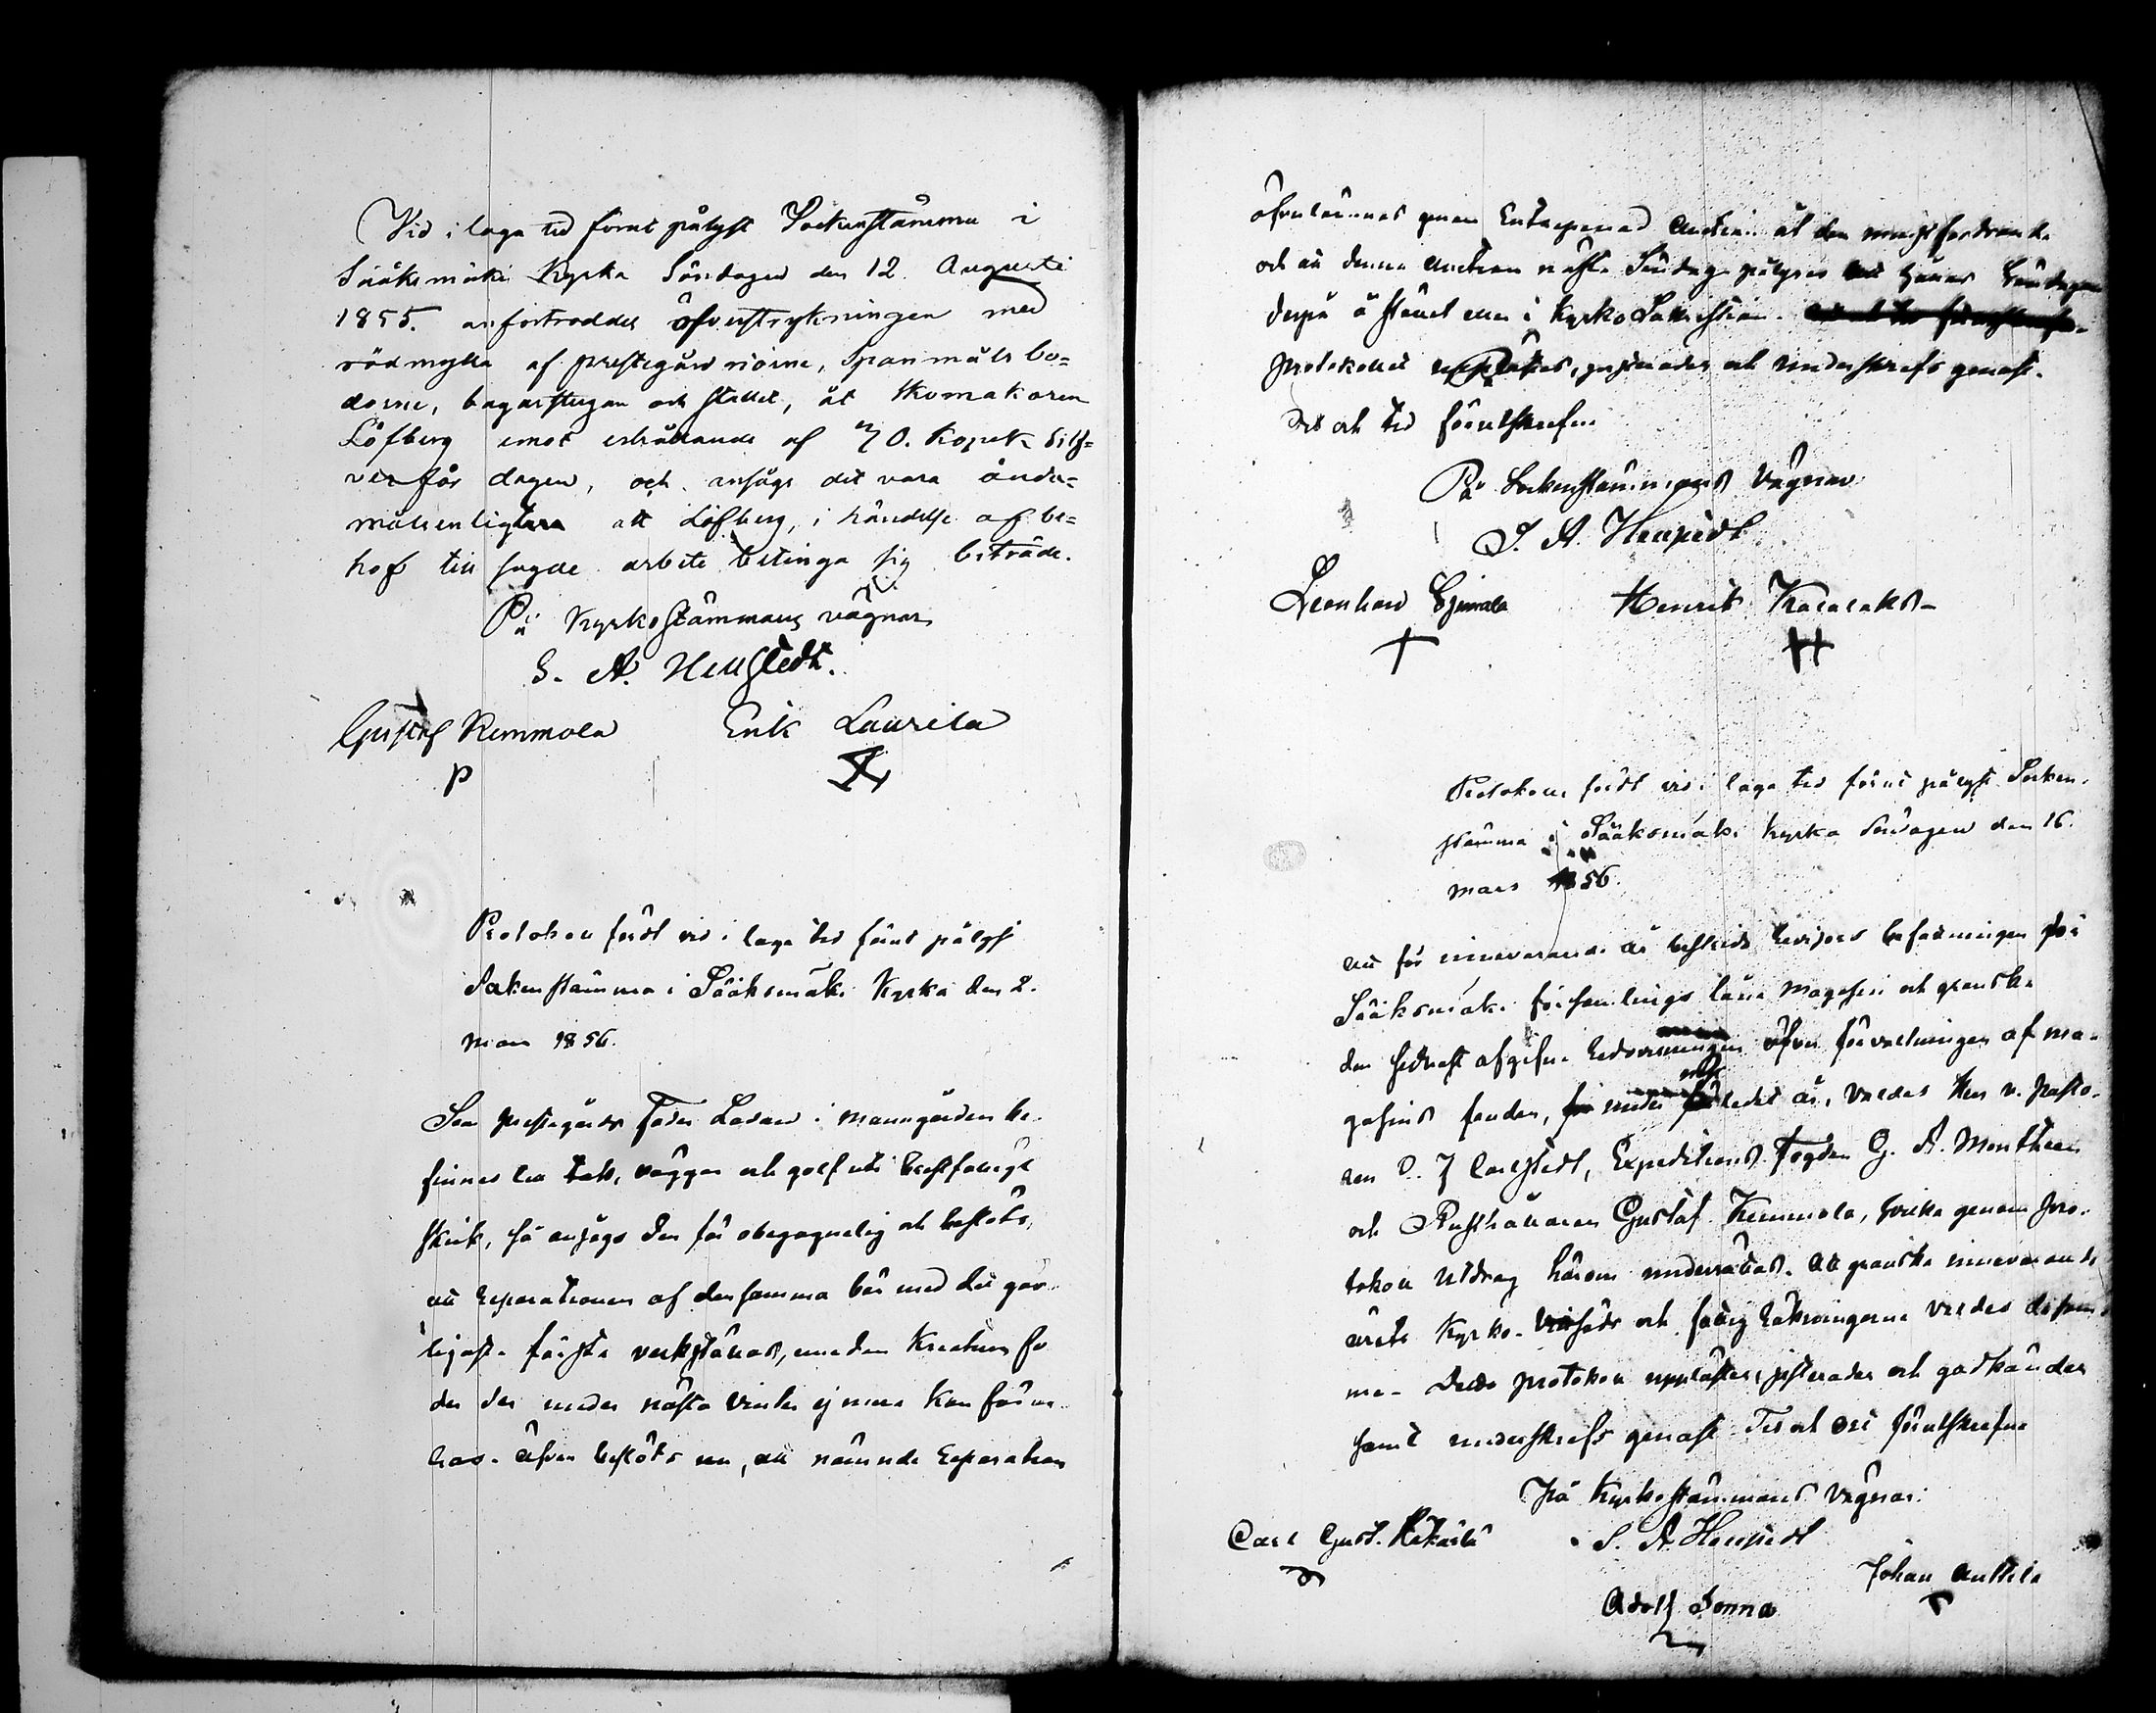 Vid i laga tid förut pålyst Sockenstämma i
Sääksmäki Kyrka Söndagen den 12 Augusti
1855. anförtroddes öfverstrykningen med
rödmylla af prestegårds , Spanmåls bo=
dorne, bagarstugan och stallet, åt Skomakaren
Löfberg emot erhållande af 70. Kopek Silf=
ver för dagen, och ansågs det vara ända=
målsenligtare att Löfberg, i händelse af be=
hof till sagde arbete betinga sig biträde.
På Kyrkostämmans vägnar
S. A. Hellstedt.
Gustaf Remmola Erik Laurila
Protokoll fördt vid i laga tid förut pålyst
Sockenstämma i Sääksmäki Kyrka den 2.
Mars 1856.
Som prestegårds Foder Ladan i manngården be-
finnes till tak, väggar och golf uti bristfälligt
skick, så ansågs den för obegagnelig och beslöts,
att Reparationen af densamma bör med det gör-
ligaste första verkställas, emedan Kreaturs fo
der der under nästa vinter ej mera kan förva-
ras. Äfven beslöts nu, att nämnde Reparation
öfverlämnas genom Entreprenad Auction åt den minstfordrande
och att denne Auction nästa Söndag pålyses och hålles Söndagen
derpå å stället eller i Kyrko Sakristian.
Protokollet upplästes, justerades och underskrefs genast.
Ort och tid förutskrefne
På Sockenstämmans vägnar
S. A. Hellstedt
Leonhard Henrik
Protokoll fördt vid i laga tid förut pålyst Socken-
stämma i Sääksmäki Kyrka Söndagen den 16.
Mars 1856.
Att för innevarande år bestrida Revisors befattningen för
Sääksmäki församlings låne Magasin och granska
den sednast afgifne Redovisningen öfver förvaltningen af ma-
gasins fonden, under sistledet år, valdes Herr v. Pasto-
ren D. J Carlstedt, Expeditions Fogden G. A. Monthen
och Rusthållaren Gustaf Remmola, hvilka genom Pro-
tokoll Utdrag härom underrättas. Att granska innevarande
årets Kyrko- och fattig Räkningarne valdes desam-
ma. Detta protokoll upplästes, justerades och godkändes
samt underskrefs genast. Tid och Ort förutskrefne
På Kyrkostämmans vägnar:
S. A. Hellstedt
Carl Gust. Johan Anttila
Adolf Jonna